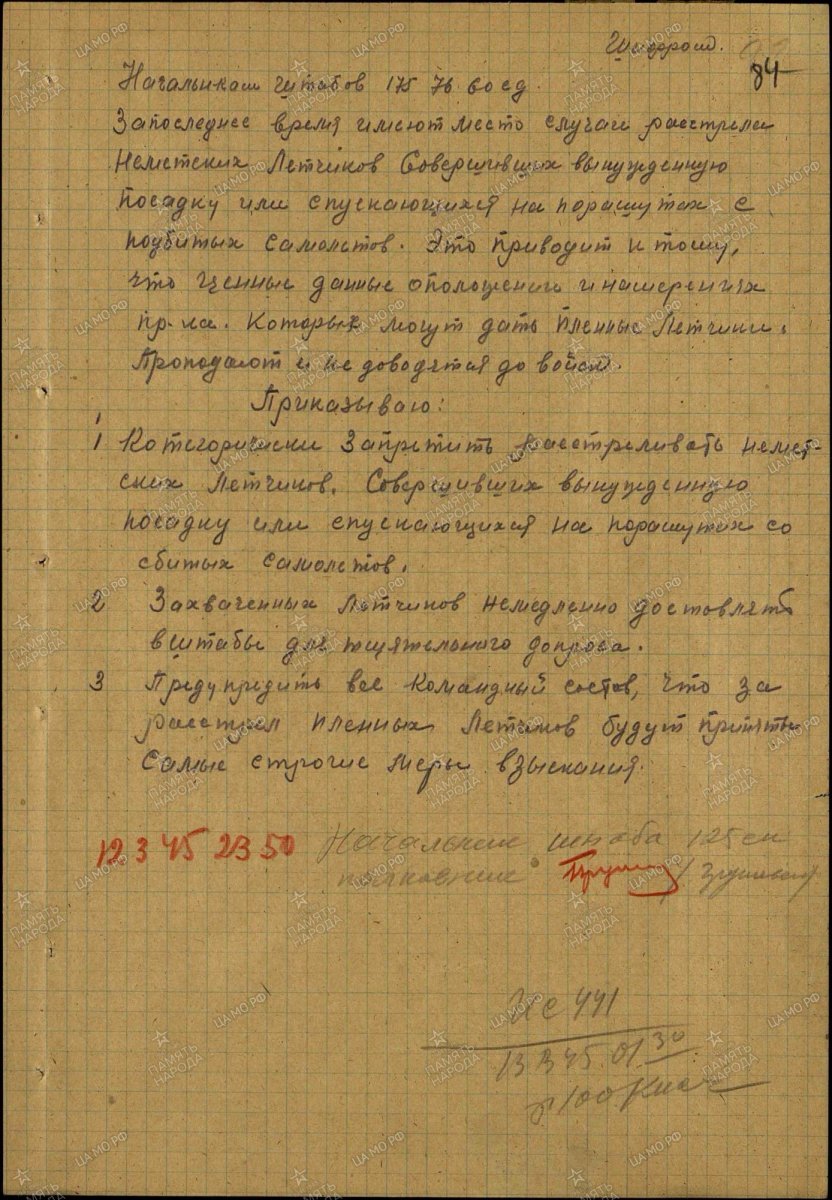 Шифром.
84
Начальникам штабов 175 76 60 сд
Запоследнее время имеют место случаи расстрела
Неметских Летчиков Совершивших вынужденную
посадку или спускающихся на порашутах с
подбитых самолетов. Это приводит к тому,
что ценные данные ополощении инамерениях
пр-ка. Которых могут дать Пленные Летчики.
Проподают и не доводятся до войск.
Приказываю:
1 Котегорически Запретить расстреливать немет-
ских Летчиков. Совершивших вынужденную
посадку или спускающихся на порашутах со
сбитых самолетов.
2 Захваченных Летчиков немедленно доставлять
вштабы для тщательного допроса.
3 Предупредить все командный состов, что за
расстрел пленных Летчиков будут приняты
Самые строгие меры взыскания.
12 3 45 23 50 Начальник штаба 125 ск
полковник
Ис 441
13 3 45 01 30
ПАМЯТЬ НАРОДА
ЦА МО РФ